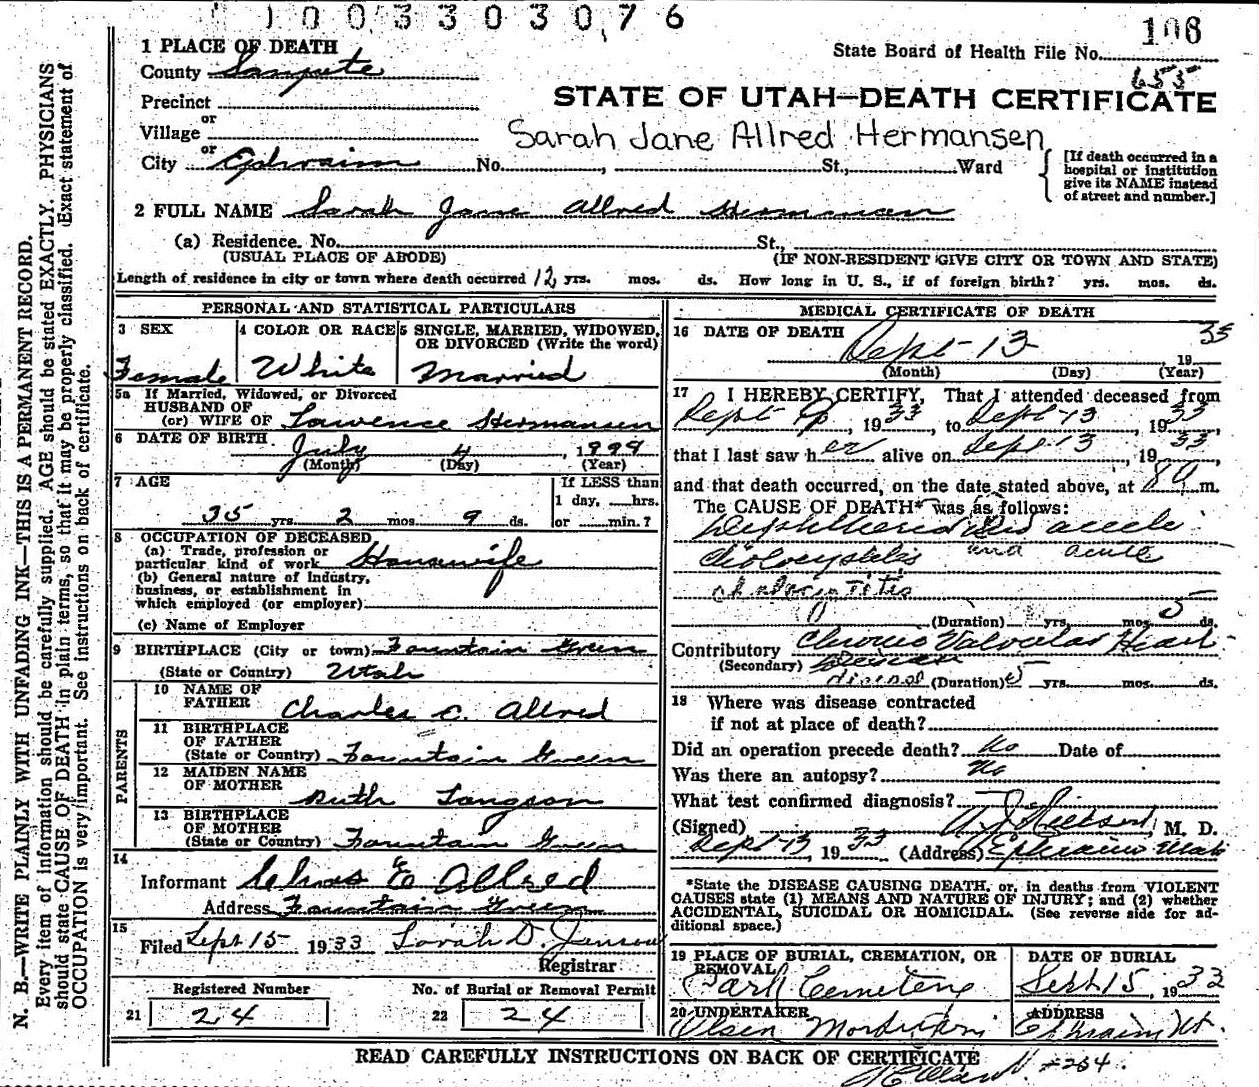 1003303076
108
State Board of Health File No.
655
1 PLACE OF DEATH
County Sanpete
Precinct
or
Village
or
City Ephraim No. , St., Ward
STATE OF UTAH—DEATH CERTIFICATE
Sarah Jane Allred Hermansen
[If death occurred in a
hospital or institution
give its NAME instead
of street and number.]
2 FULL NAME Sarah Jane Allred Hermansen
(a) Residence. No. St.,
(USUAL PLACE OF ABODE) (IF NON-RESIDENT GIVE CITY OR TOWN AND STATE)
Length of residence in city or town where death occurred 12 yrs. mos. ds. How long in U. S., if of foreign birth? yrs. mos. ds.
PERSONAL AND STATISTICAL PARTICULARS
3 SEX
Female
4 COLOR OR RACE
White
5 SINGLE, MARRIED, WIDOWED,
OR DIVORCED (Write the word)
Married
5a If Married, Widowed, or Divorced
HUSBAND OF
(or) WIFE OF Lawrence Hermansen
6 DATE OF BIRTH July 4, 1
(Month) (Day) (Year)
7 AGE
35 yrs. 2 mos. 9 ds.
If LESS than
1 day, hrs.
or min.?
8 OCCUPATION OF DECEASED
(a) Trade, profession or
particular kind of work Housewife
(b) General nature of Industry,
business, or establishment in
which employed (or employer)
(c) Name of Employer
9 BIRTHPLACE (City or town) Fountain Green
(State or Country) Utah
PARENTS
10 NAME OF
FATHER Charles C. Allred
11 BIRTHPLACE
OF FATHER
(State or Country) Fountain Green
12 MAIDEN NAME
OF MOTHER Ruth
13 BIRTHPLACE
OF MOTHER
(State or Country) Fountain Green
14
Informant Chas E Allred
Address Fountain Green
15
Filed Sept 15 1933 Sarah D. Jensen
Registrar
Registered Number
21 24
No. of Burial or Removal Permit
22 24
MEDICAL CERTIFICATE OF DEATH
16 DATE OF DEATH
Sept 13 1933
(Month) (Day) (Year)
17 I HEREBY CERTIFY, That I attended deceased from
Sept 9, 1933, to Sept 13, 1933,
that I last saw her alive on Sept 13, 1933,
and that death occurred, on the date stated above, at 8 m.
The CAUSE OF DEATH* was as follows:
acute
and acute
(Duration) yrs. mos. 5 ds.
Contributory Chronic Valvular Heart
(Secondary)
disease (Duration) 5 yrs. mos. ds.
18 Where was disease contracted
if not at place of death?
Did an operation precede death? No Date of
Was there an autopsy? No
What test confirmed diagnosis?
(Signed) , M. D.
Sept 13 1933 (Address) Ephraim Utah
*State the DISEASE CAUSING DEATH, or, in deaths from VIOLENT
CAUSES state (1) MEANS AND NATURE OF INJURY; and (2) whether
ACCIDENTAL, SUICIDAL OR HOMICIDAL. (See reverse side for ad-
ditional space.)
19 PLACE OF BURIAL, CREMATION, OR
REMOVAL
Park Cemetery
DATE OF BURIAL
Sept 15, 1933
20 UNDERTAKER
Olsen Mortuary
ADDRESS
Ephraim Ut.
READ CAREFULLY INSTRUCTIONS ON BACK OF CERTIFICATE
N. B.—WRITE PLAINLY WITH UNFADING INK—THIS IS A PERMANENT RECORD.
Every item of information should be carefully supplied. AGE should be stated EXACTLY. PHYSICIANS
should state CAUSE OF DEATH in plain terms, so that it may be properly classified. Exact statement of
OCCUPATION is very important. See instructions on back of certificate.